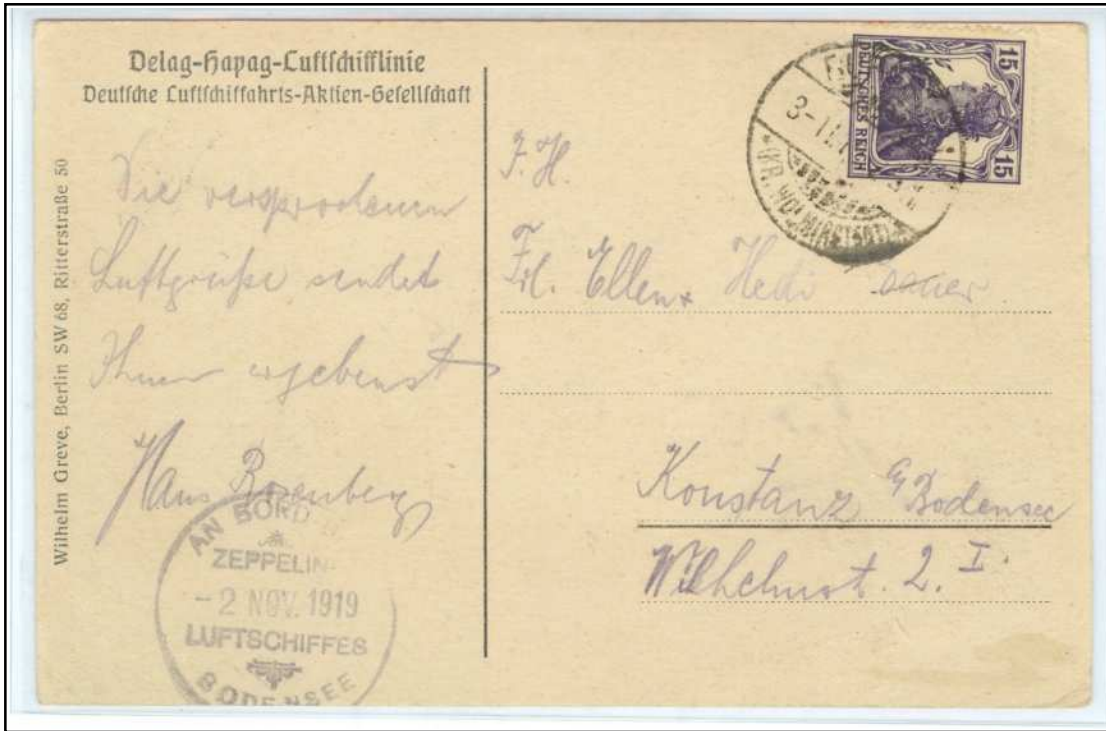 Delag-Hapag-Luftschifflinie
Deutsche Luftschiffahrts-Aktien-Gesellschaft
Wilhelm Greve, Berlin SW 68, Ritterstraße 50
Die versprochenen
Luftgrüße sendet
Ihnen ergebenst
Hans Rosenberg
AN BORD
ZEPPELIN-
- 2 NOV. 1919
LUFTSCHIFFES
BODENSEE
15 DEUTSCHES REICH 15
3-11.
(KR. WOLMIRSTEDT)
F. H.
Frl. Ellen + Hedi
Konstanz a/Bodensee
Wilhelmst. 2. I.